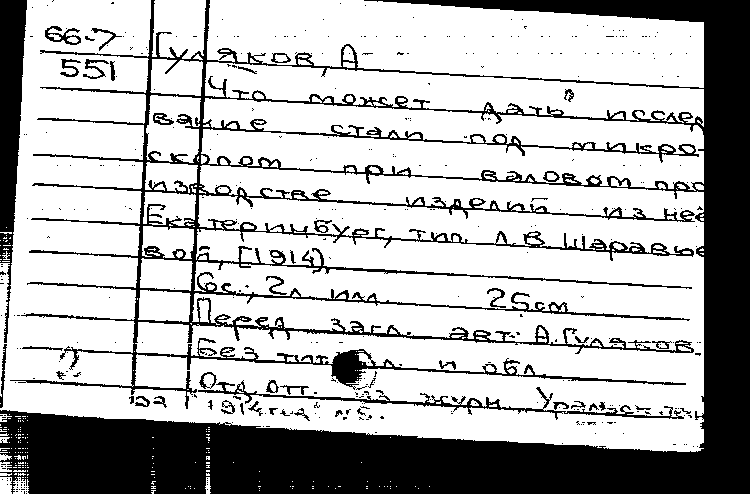 66-7 Гуляков, А
551 Что может дать исслед
вание стали под микро-
скопом при валовом про
изводстве изделий из нее
Екатеринбург, тип. Л.В. Шаравье
вой, [1914].
6с., 2л илл. 25см
Перед загл. авт: А. Гуляков.
Без тит. л. и обл.
2 Отд. отт. из журн. Уральск. техн
1914 год № 5.